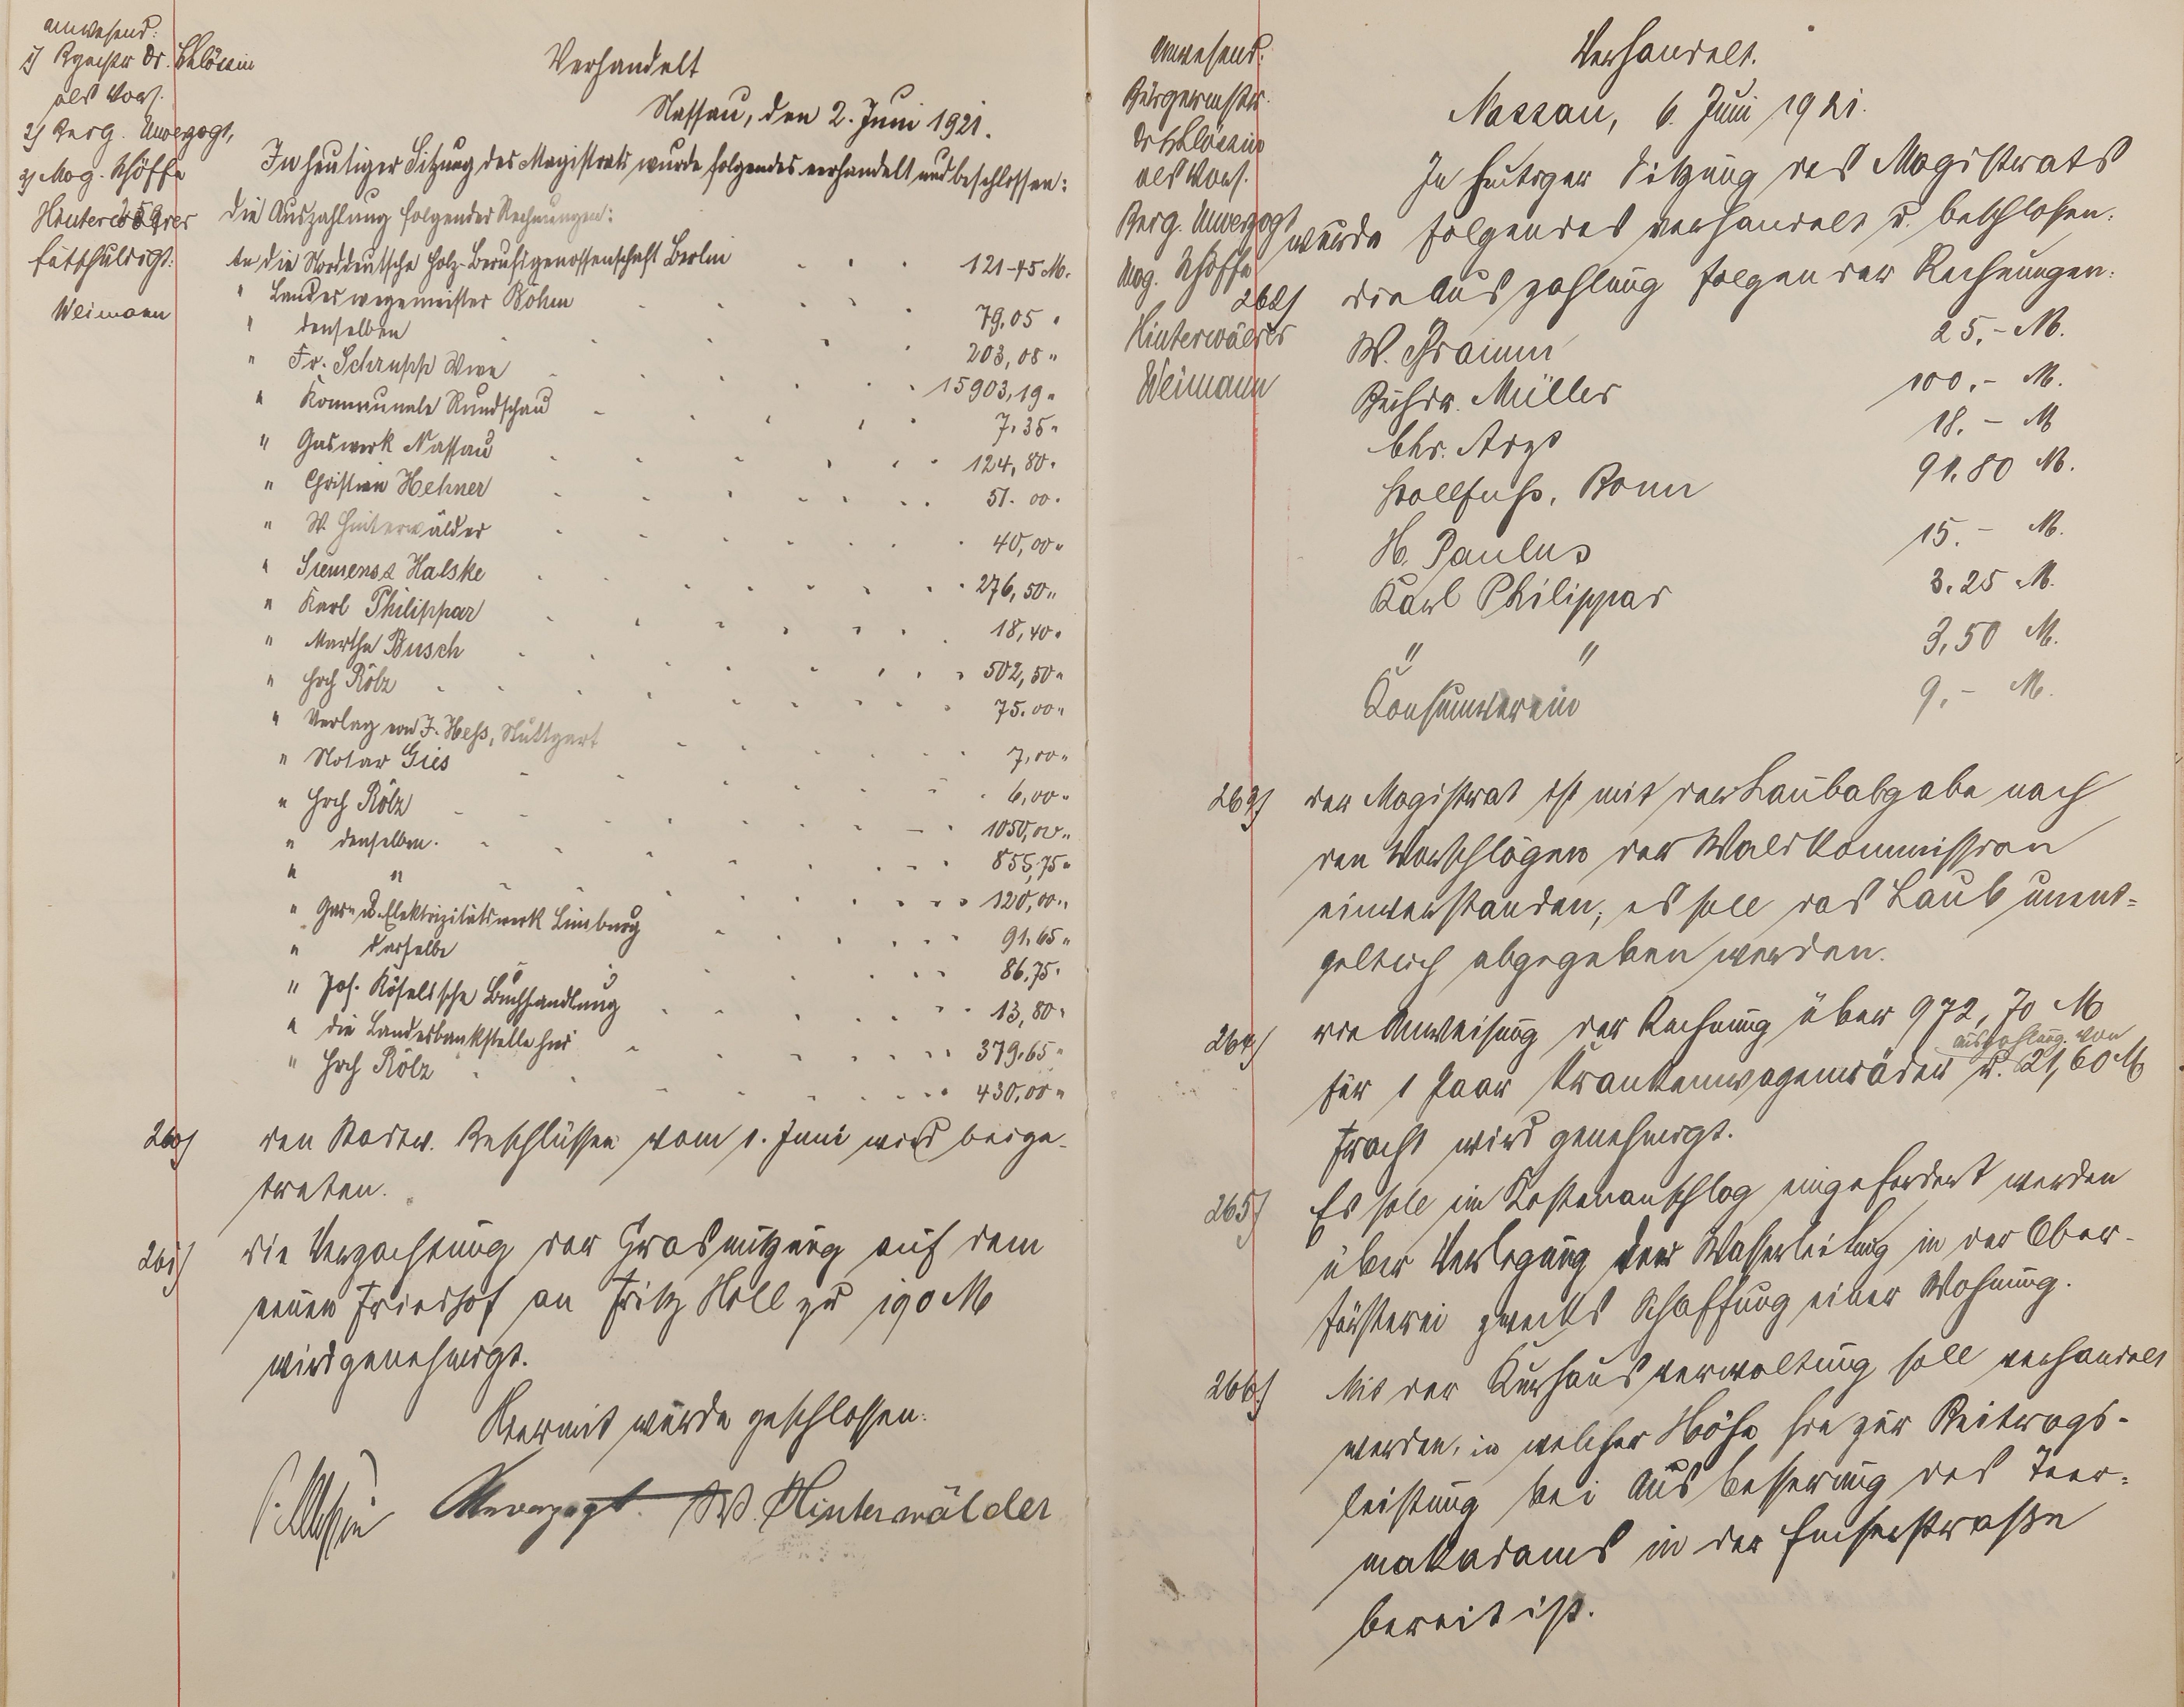 anwesend:
1) Bgmstr Dr. Schlössin
als Vors.
2) Beig. Unverzagt,
3) Mag. Schöffe
Hinterwälder
entschuldigt:
Weimann
Verhandelt
Nassau, den 2. Juni 1921.
In heutiger Sitzung des Magistrats wurde folgendes verhandelt und beschlossen:
259
die Auszahlung folgender Rechnungen:
An die Norddeutsche Holz-Berufsgenossenschaft Berlin 121-45 M.
" Landeswegemeister Böhm 79,05 "
" denselben 203,08 "
" Fr. Schrupp Wwe 15903,19 "
" Kommunale Rundschau 7,35 "
" Gaswerk Nassau 124,80 "
" Christian Hehner 51.00 "
" W. Hinterwälder 40,00 "
" Siemens & Halske 276,50 "
" Karl Philippar 18,40 "
" Martha Busch 502,50 "
" Hrch Rölz 75.00 "
" Verlag von J. Heß, Stuttgart 7,00 "
" Notar Gies 6,00 "
" Hrch Rölz 1050,00 "
" denselben. 855,75 "
" " 120,00 "
" Gas- u. Elektrizitätswerk Limburg 91,65 "
" dasselbe 86,75 "
" Jos. Köselsche Buchhandlung 13,80 "
" die Landesbankstelle hier 379,65 "
" Hrch Rölz 430,00 "
260) den Stadtv. Beschlüssen vom 1. Juni wird beige-
treten.
261) die Verpachtung der Grasnutzung auf dem
neuen Friedhof an Fritz Holl zu 190 M
wird genehmigt.
Hiermit wurde geschlossen:
Unverzagt. W. Hinterwälder
Anwesend:
Bürgermstr.
Dr Schlössin
als Vors.
Beig. Unverzagt
Mag. Schöffe
Hinterwälder
Weimann
Verhandelt.
Nassau, 6. Juni 1921.
In heutiger Sitzung des Magistrats
wurde folgendes verhandelt u. beschlossen:
262) die Auszahlung folgender Rechnungen:
W. Bramm 25,- M.
Buchdr. Müller 100,- M.
Chr. Arzt 18.- M
Hollfuß, Bonn 91.80 M.
H. Paulus 15.- M.
Karl Philippar 3.25 M.
" " 3,50 M.
Konsumverein 9,- M.
263) der Magistrat ist mit der Laubabgabe nach
den Vorschlägen der Waldkommission
einverstanden; es soll das Laub unent-
geltlich abgegeben werden.
264) die Anweisung der Rechnung über 972,70 M
auszahlung von
für 1 Paar Krankenwagenräder u. 21,60 M
Fracht wird genehmigt.
265) Es soll ein Kostenanschlag eingefordert werden
über Verlegung der Wasserleitung in der Ober-
försterei zwecks Schaffung einer Wohnung.
266) Mit der Kurhausverwaltung soll verhandelt
werden, in welcher Höhe sie zur Beitrags-
leistung bei Ausbesserung des Teer-
makadams in der Emserstraße
bereit ist.